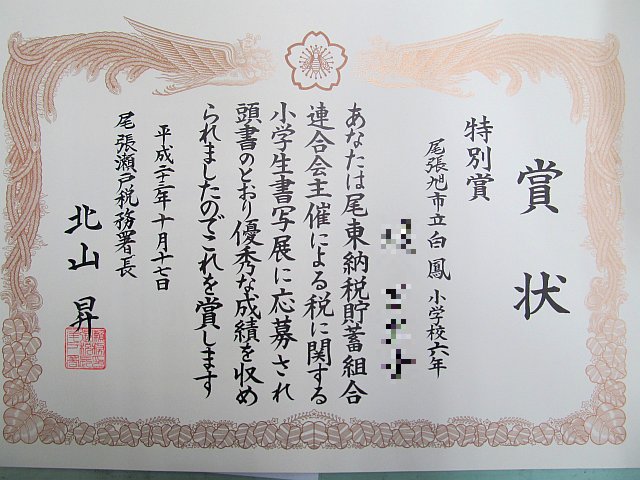 賞状
特別賞
尾張旭市立白鳳小学校六年
あなたは尾東納税貯蓄組合
連合会主催による税に関する
小学生書写展に応募され
頭書のとおり優秀な成績を収め
られましたのでこれを賞します
平成二十三年十月十七日
尾張瀬戸税務署長
北山昇